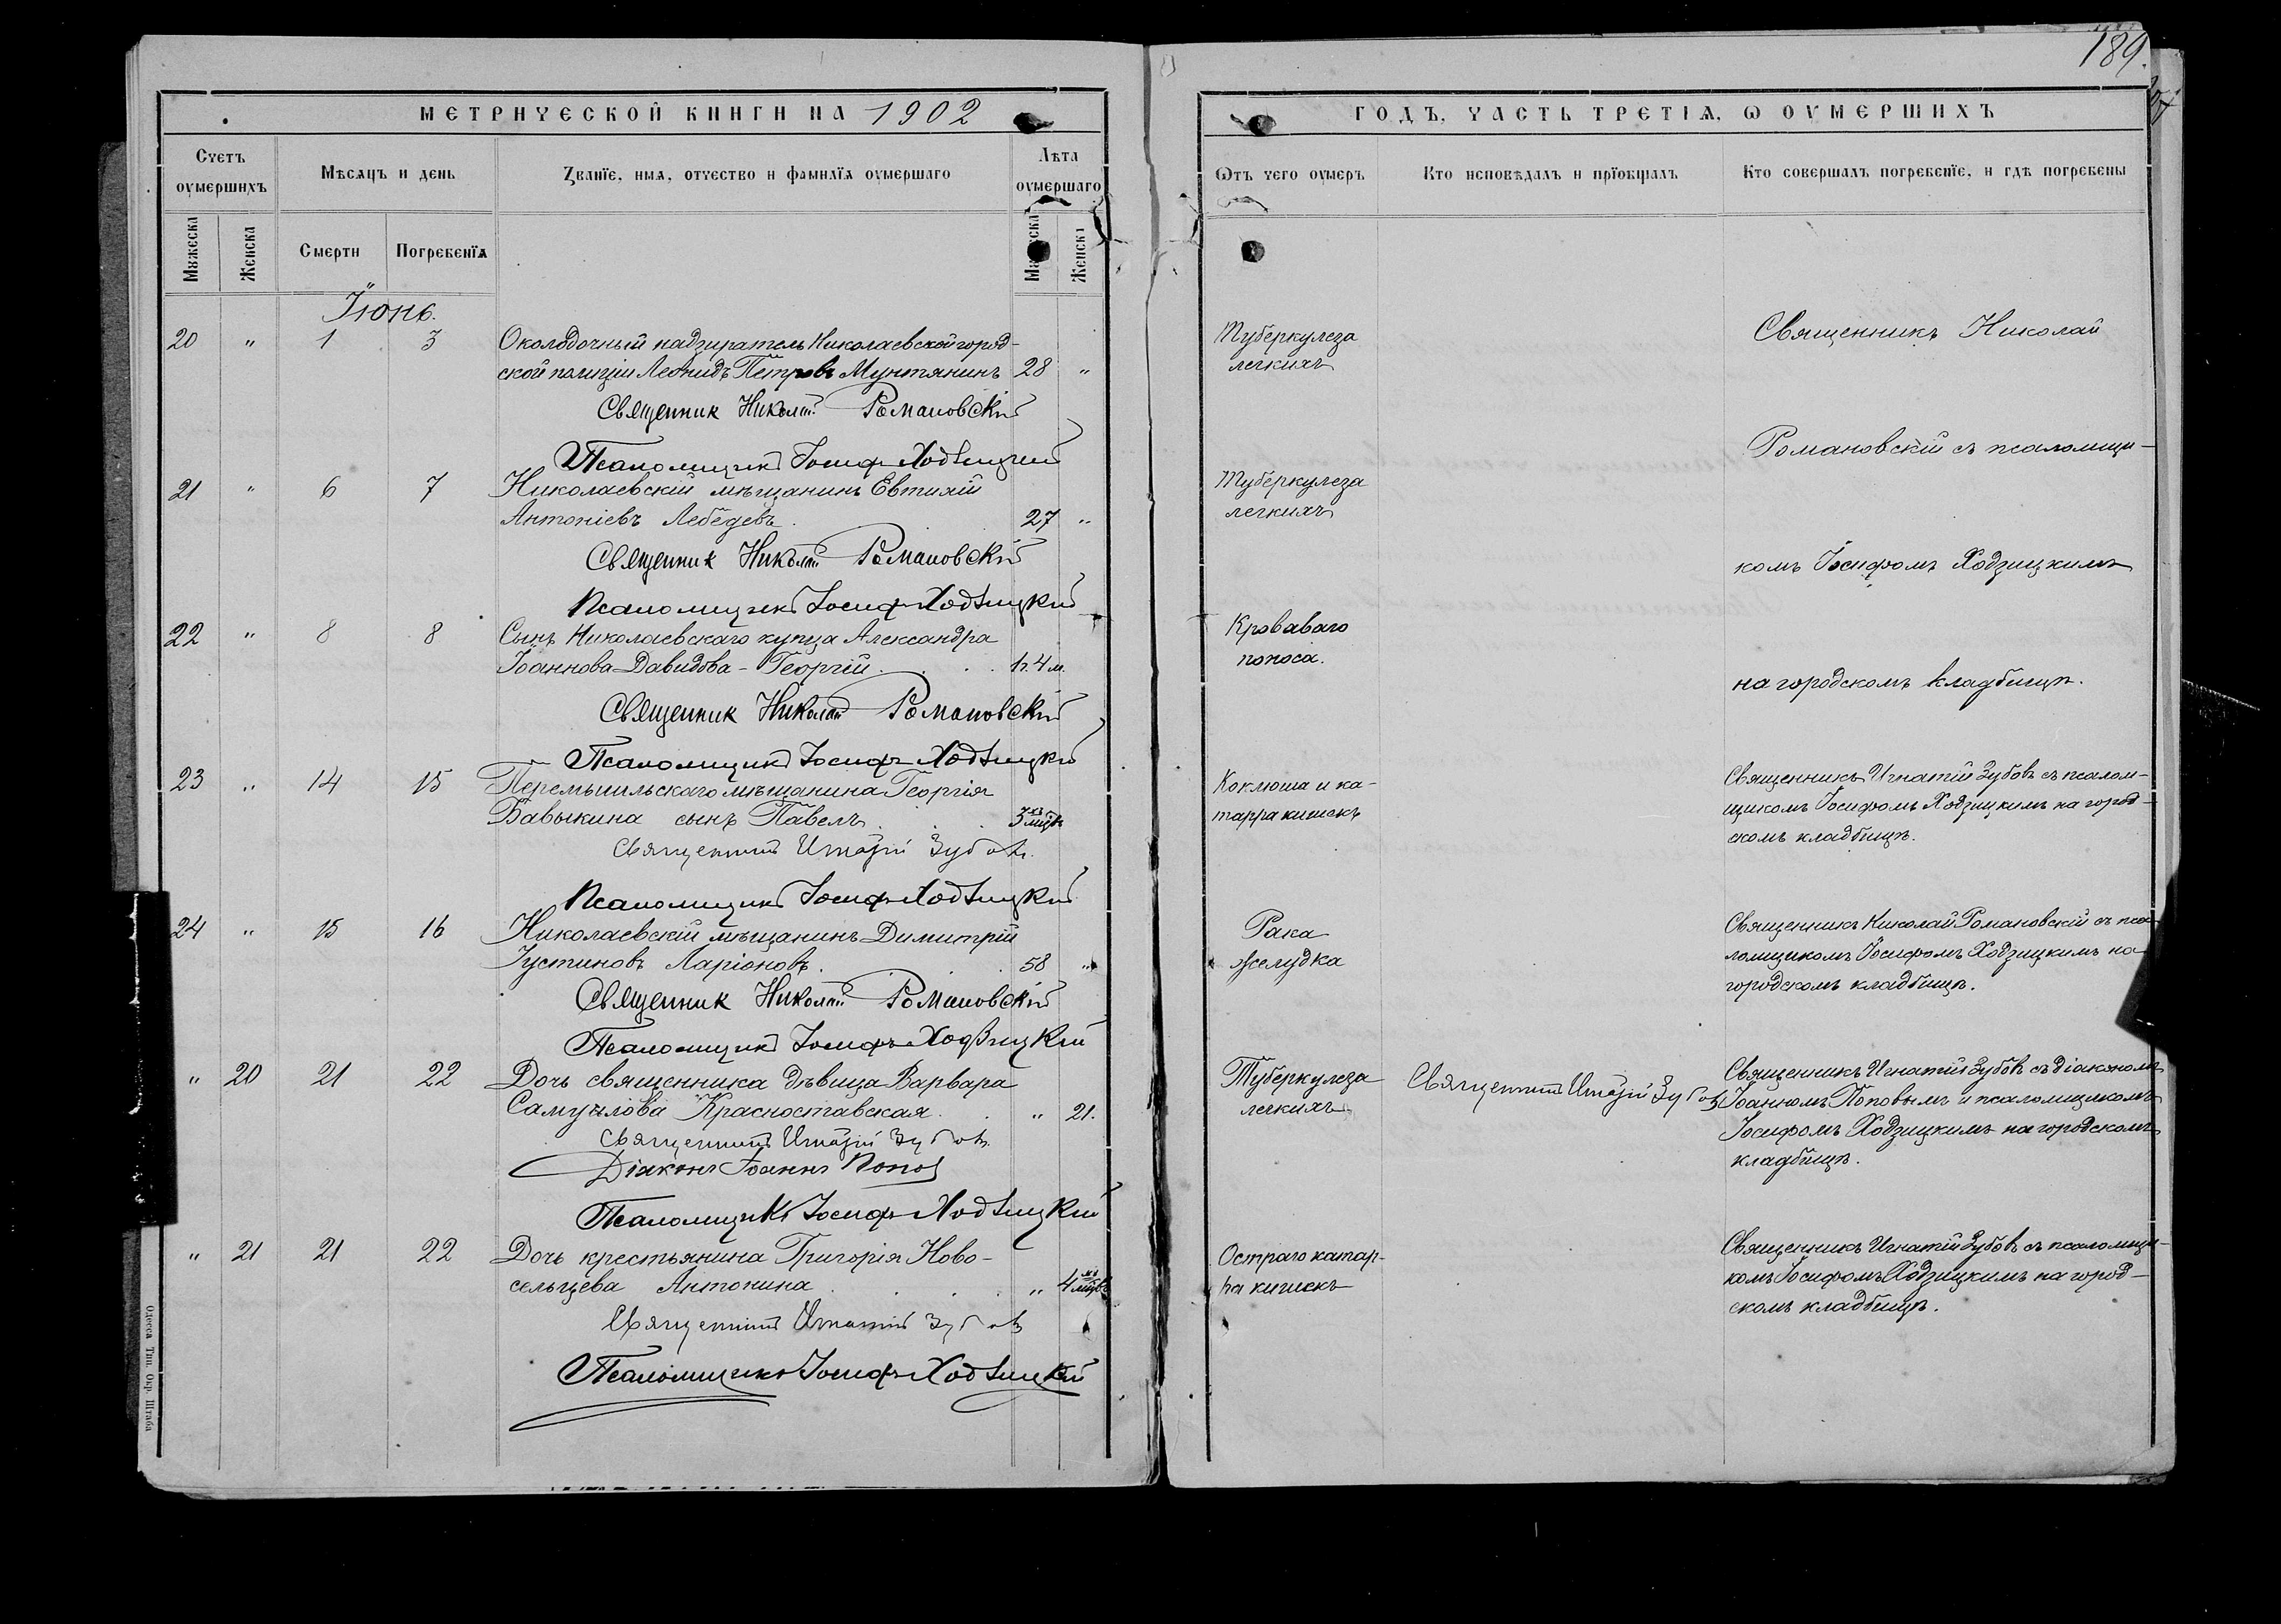 189.
МЕТРИЧЕСКОЙ КНИГИ НА 1902
ГОДЪ, ЧАСТЬ ТРЕТІѦ, Ѡ ОУМЕРШИХЪ
Счетъ оумершихъ
Мѣсяцъ и день
Званїе, имѧ, отчество и фамилїѧ оумершаго
Лѣта оумершаго
Ѿтъ чего оумеръ
Кто исповѣдалъ и прїобщалъ
Кто совершалъ погребенїе, и гдѣ погребены
Мужеска
Женска
Смерти
Погребенїѧ
Женска
Іюнь.
20 " 1 3 Околодочный надзиратель Николаевской город-
ской полиціи Леонидъ Петровъ Мунтянинъ 28 "
Священник Николай Романовскій
Псаломщикъ Іосифъ Ходзицкій
Туберкулеза
легкихъ
Священникъ Николай
Романовскій съ псаломщи-
21 " 6 7 Николаевскій мѣщанинъ Евтихій
Антоніевъ Лебедевъ. 27 "
Священник Николай Романовскій
Псаломщикъ Іосифъ Ходзицкій
Туберкулеза
легкихъ
комъ Іосифомъ Ходзицкимъ
22 " 8 8 Сынъ Николаевскаго купца Александра
Іоаннова Давидова - Георгій . . . 1г. 4м.
Священник Николай Романовскій
Псаломщикъ Іосифъ Ходзицкій
Кроваваго
поноса.
на городскомъ кладбищѣ.
23 " 14 15 Перемышльскаго мѣщанина Георгія
Бавыкина сынъ Павелъ . . . 3 мѣсц.
Священникъ Игнатій Зубовъ.
Псаломщикъ Іосифъ Ходзицкій
Коклюша и ка-
тарра кишекъ
Священникъ Игнатій Зубовъ съ псалом-
щикомъ Іосифомъ Ходзицкимъ на город-
скомъ кладбищѣ.
24 " 15 16 Николаевскій мѣщанинъ Димитрій
Іустиновъ Ларіоновъ . . . 58 "
Священник Николай Романовскій
Псаломщикъ Іосифъ Ходзицкій
Рака
желудка
Священникъ Николай Романовскій съ пса-
ломщикомъ Іосифомъ Ходзицкимъ на
городскомъ кладбищѣ.
" 20 21 22 Дочь священника дѣвица Варвара
Самуилова Красноставская . . " 21.
Священникъ Игнатій Зубовъ.
Діаконъ Іоаннъ Поповъ
Псаломщикъ Іосифъ Ходзицкій
Туберкулеза
легкихъ
Священникъ Игнатій Зубовъ
Священникъ Игнатій Зубовъ съ діакономъ
Іоанномъ Поповымъ и псаломщикомъ
Іосифомъ Ходзицкимъ на городскомъ
кладбищѣ.
" 21 21 22 Дочь крестьянина Григорія Ново-
сельцева Антонина . . . " 4 мѣсц.
Священникъ Игнатій Зубовъ
Псаломщикъ Іосифъ Ходзицкій
Остраго катар-
ра кишекъ
Священникъ Игнатій Зубовъ съ псаломщи-
комъ Іосифомъ Ходзицкимъ на город-
скомъ кладбищѣ.
Одесса Тип. Окр. Штаба